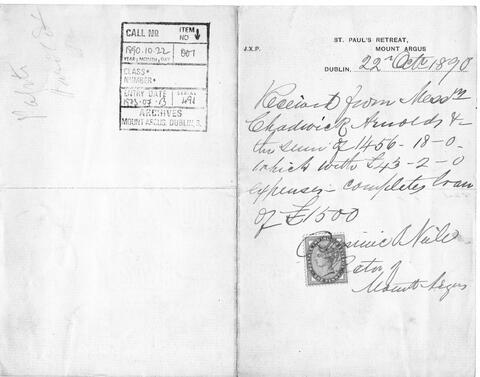 CALL NO.
ITEM NO
1890.10.22
007
YEAR, MONTH, DAY
CLASS
NUMBER
ENTRY DATE
SERIAL
1973-07-13
491
ARCHIVES
MOUNT ARGUS, DUBLIN, 6.
J.X.P.
ST. PAUL'S RETREAT,
MOUNT ARGUS
DUBLIN, 22nd Octr 1890
Received from Messrs
Chadwick Arnolds &
the sum of 1456-18-0
which with £43-2-0
expenses completes loan
of £1500
Dominic O'Neill
Rector of
Mount Argus